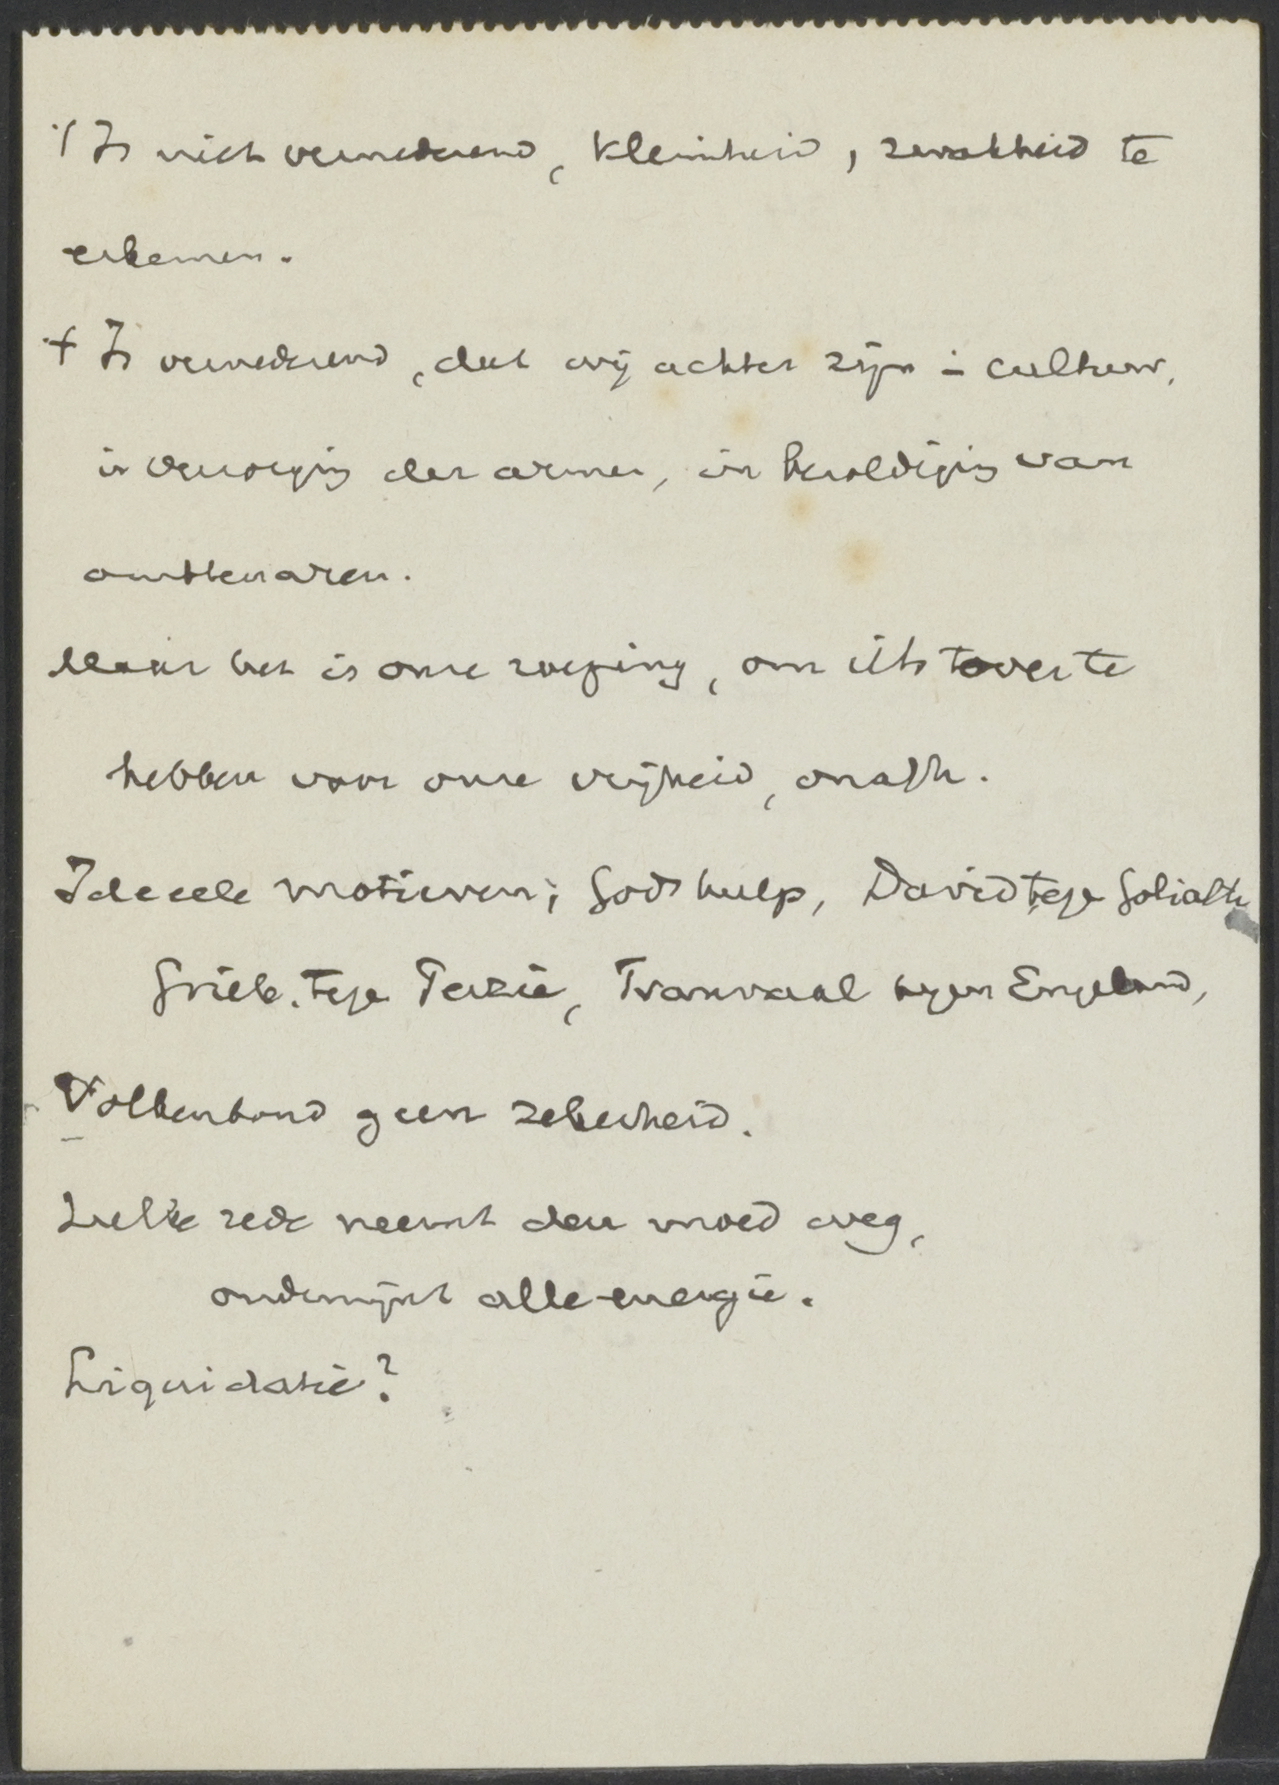 + Is niet vernederend, kleinheid, zwakheid te
erkennen.
+ Is vernederend, dat wij achter zijn in cultuur,
in verzorging der armen, in bezoldiging van
ambtenaren.
Maar het is onze roeping, om iets over te
hebben voor onze vrijheid, onafh.
Ideeele motieven; Gods hulp, David tegen Goliath
Griek. tegen Perzie, Transvaal tegen Engeland,
Volkenbond geen zekerheid.
Zulke rede neemt den moed weg,
ondermijnt alle energie.
Liquidatie?